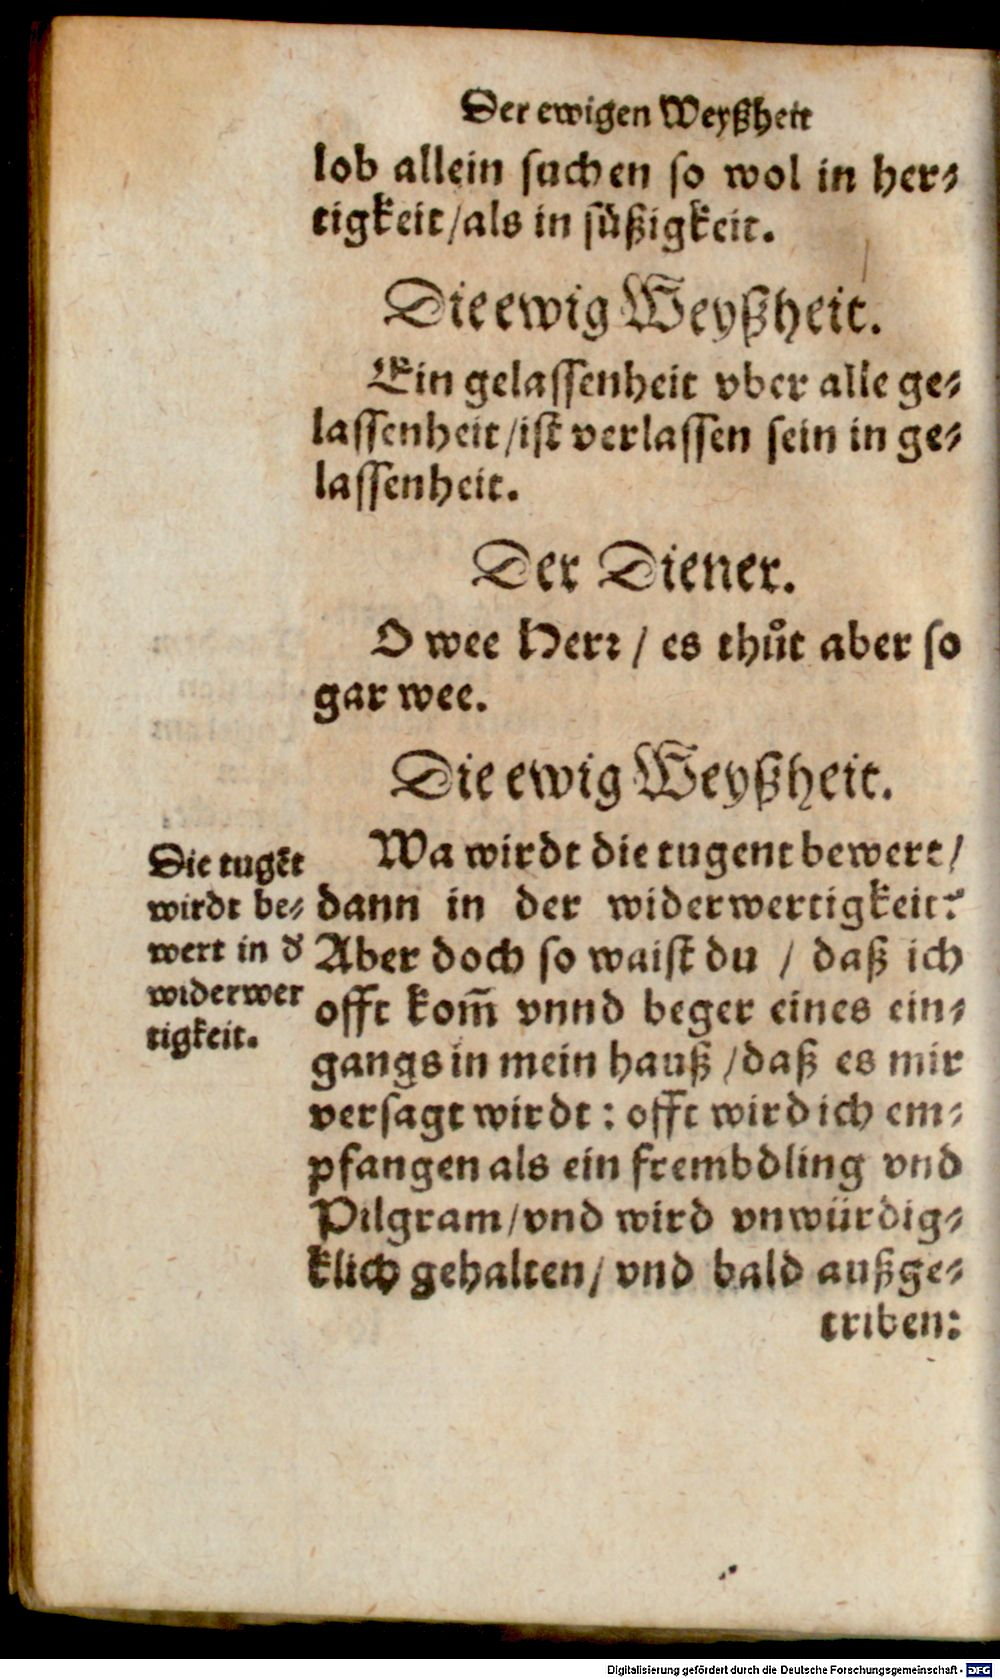 Der ewigen Weyßheit
lob allein suchen so wol in her⸗
tigkeit/als in süßigkeit.
Die ewig Weyßheit.
Ein gelassenheit vber alle ge⸗
lassenheit/ist verlassen sein in ge⸗
lassenheit.
Der Diener.
O wee Herr / es thůt aber so
gar wee.
Die ewig Weyßheit.
Wa wirdt die tugent bewert/
dann in der widerwertigkeit?
Aber doch so waist du / daß ich
offt kom̃ vnnd beger eines ein⸗
gangs in mein hauß /daß es mir
versagt wirdt: offt wird ich em⸗
pfangen als ein frembdling vnd
Pilgram/vnd wird vnwürdig⸗
klich gehalten/ vnd bald außge⸗
triben:
Die tugẽt
wirdt be⸗
wert in d̕
widerwer
tigkeit.
Digitalisierung gefördert durch die Deutsche Forschungsgemeinschaft - DFG